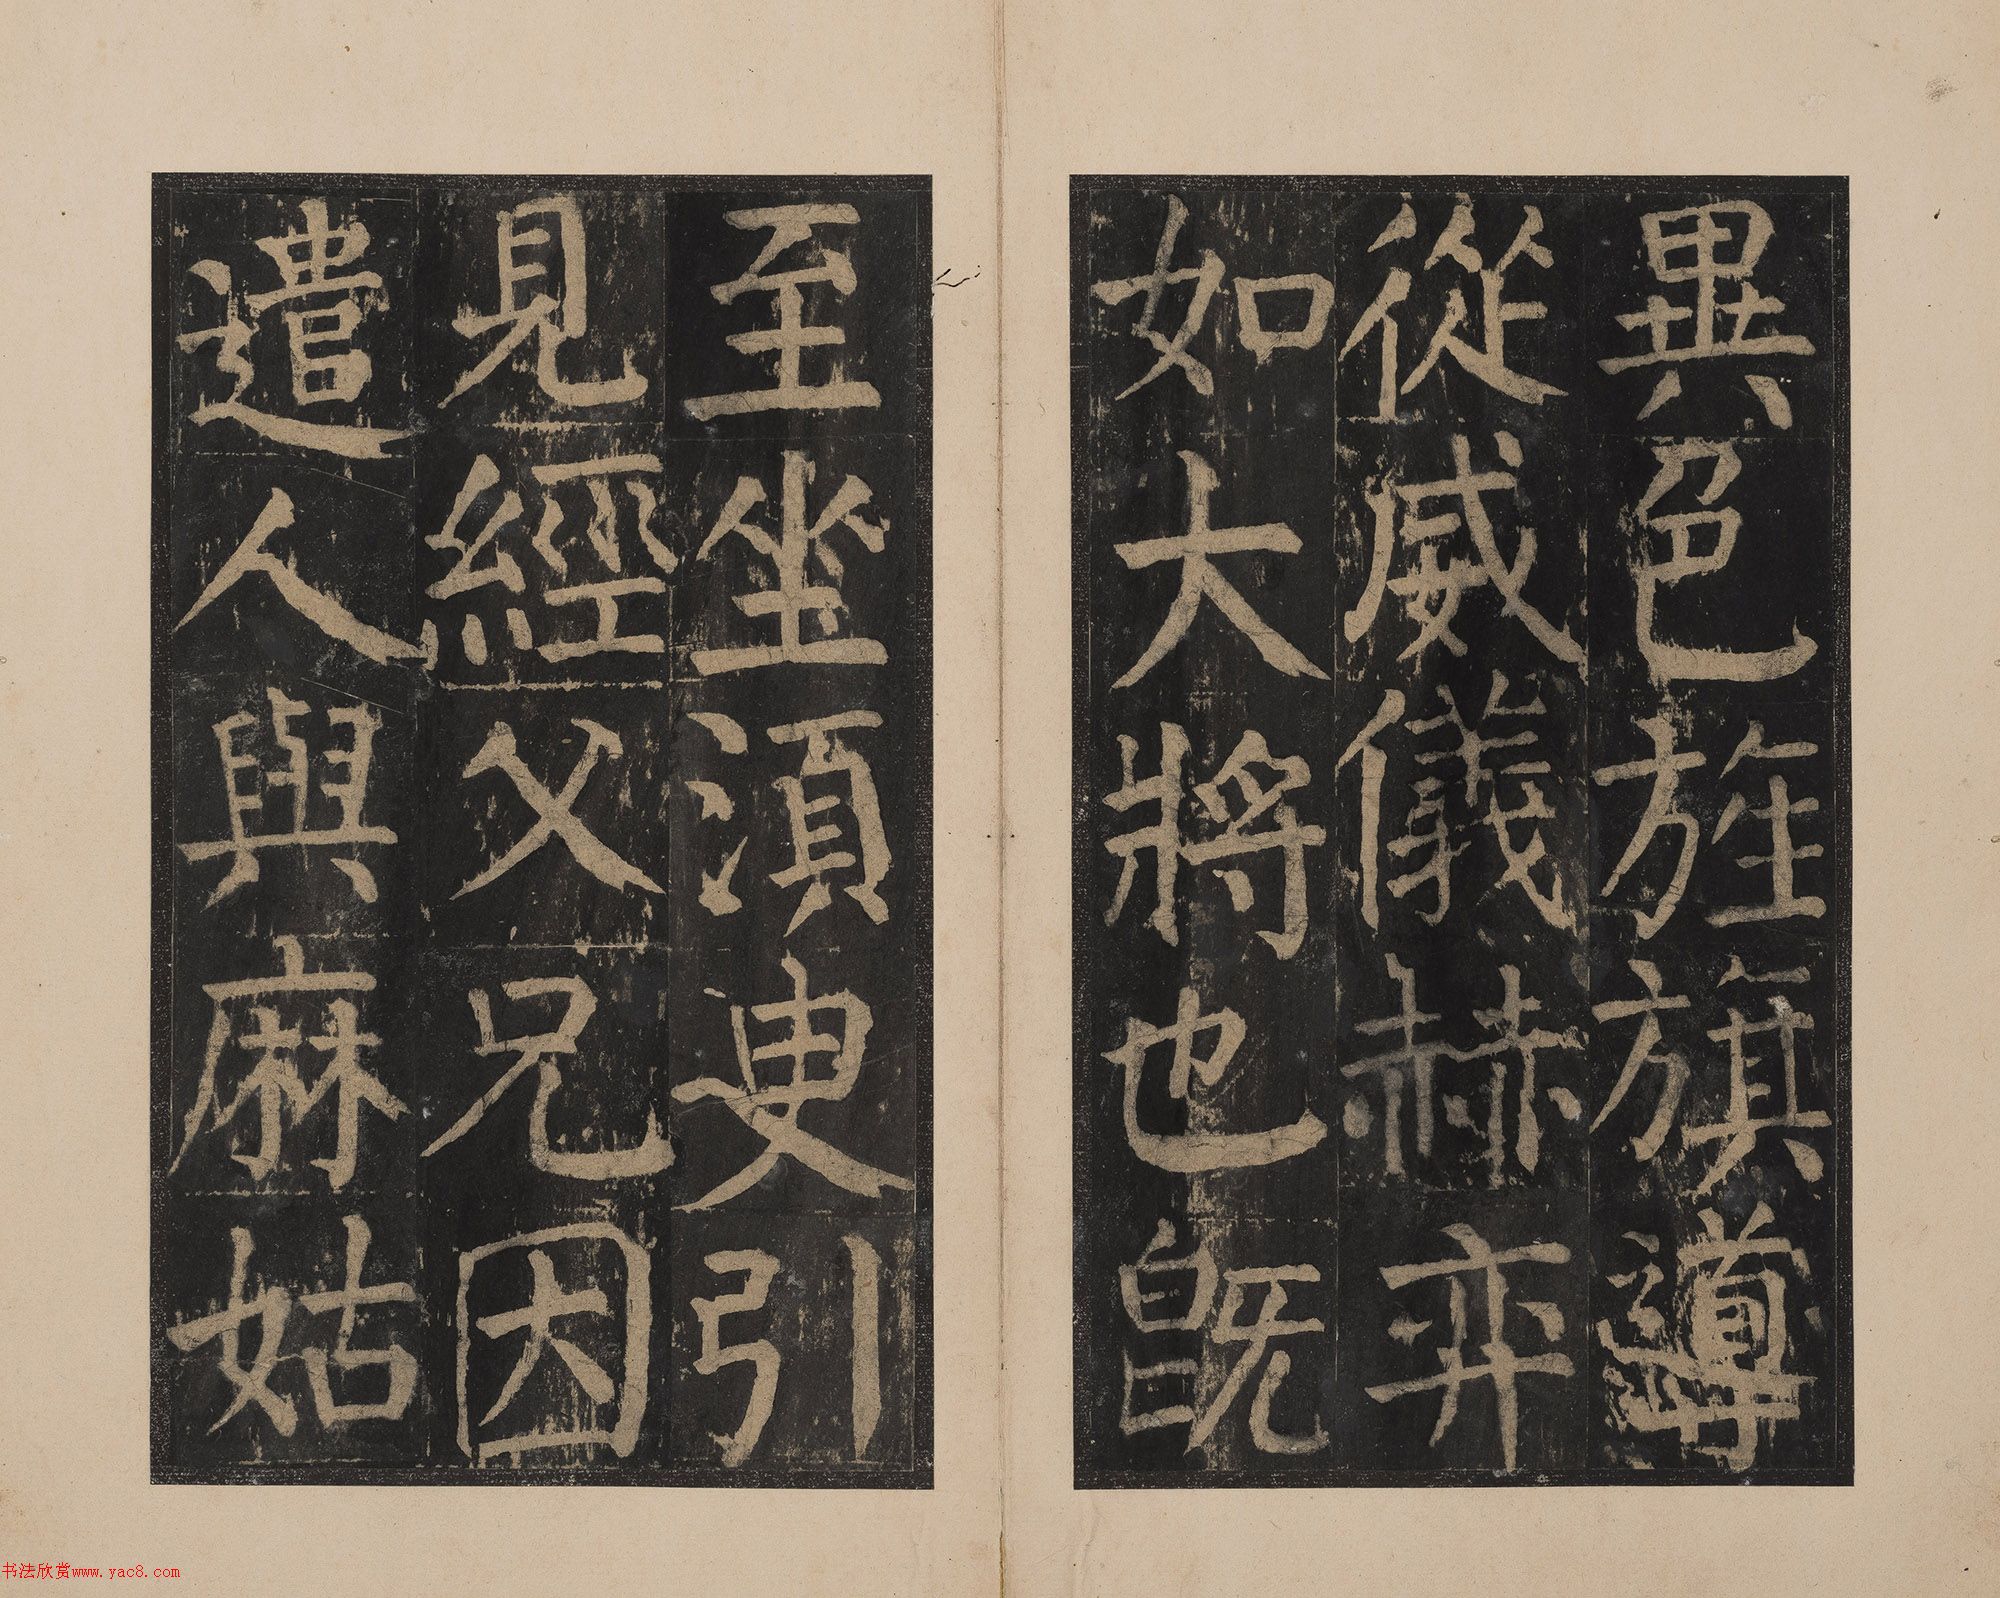 異色旌旗導
從威儀赫弈
如大將也既
至坐須臾引
見經父兄因
遣人與麻姑
书法欣赏www.yac8.com